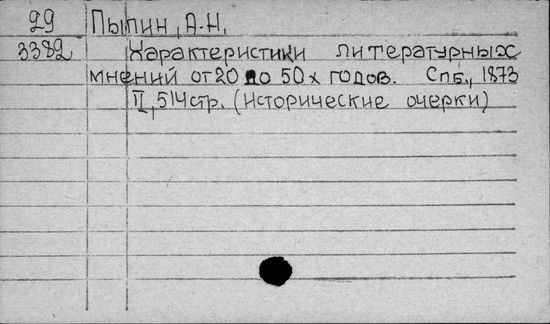 29 Пыпин, А.Н.
3382 Характеристики литературных
мнений от 20 до 50х годов. Спб., 1873
II, 514 стр. (Исторические очерки)